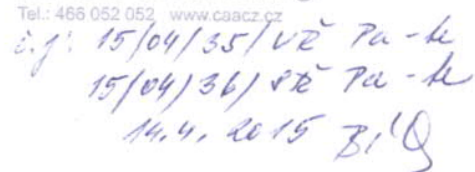 Tel.: 466 052 052 www.caacz.cz
č.j: 15/04/35/VŘ Pa-te
15/04/36/PŘ Pa-te
14.4. 2015